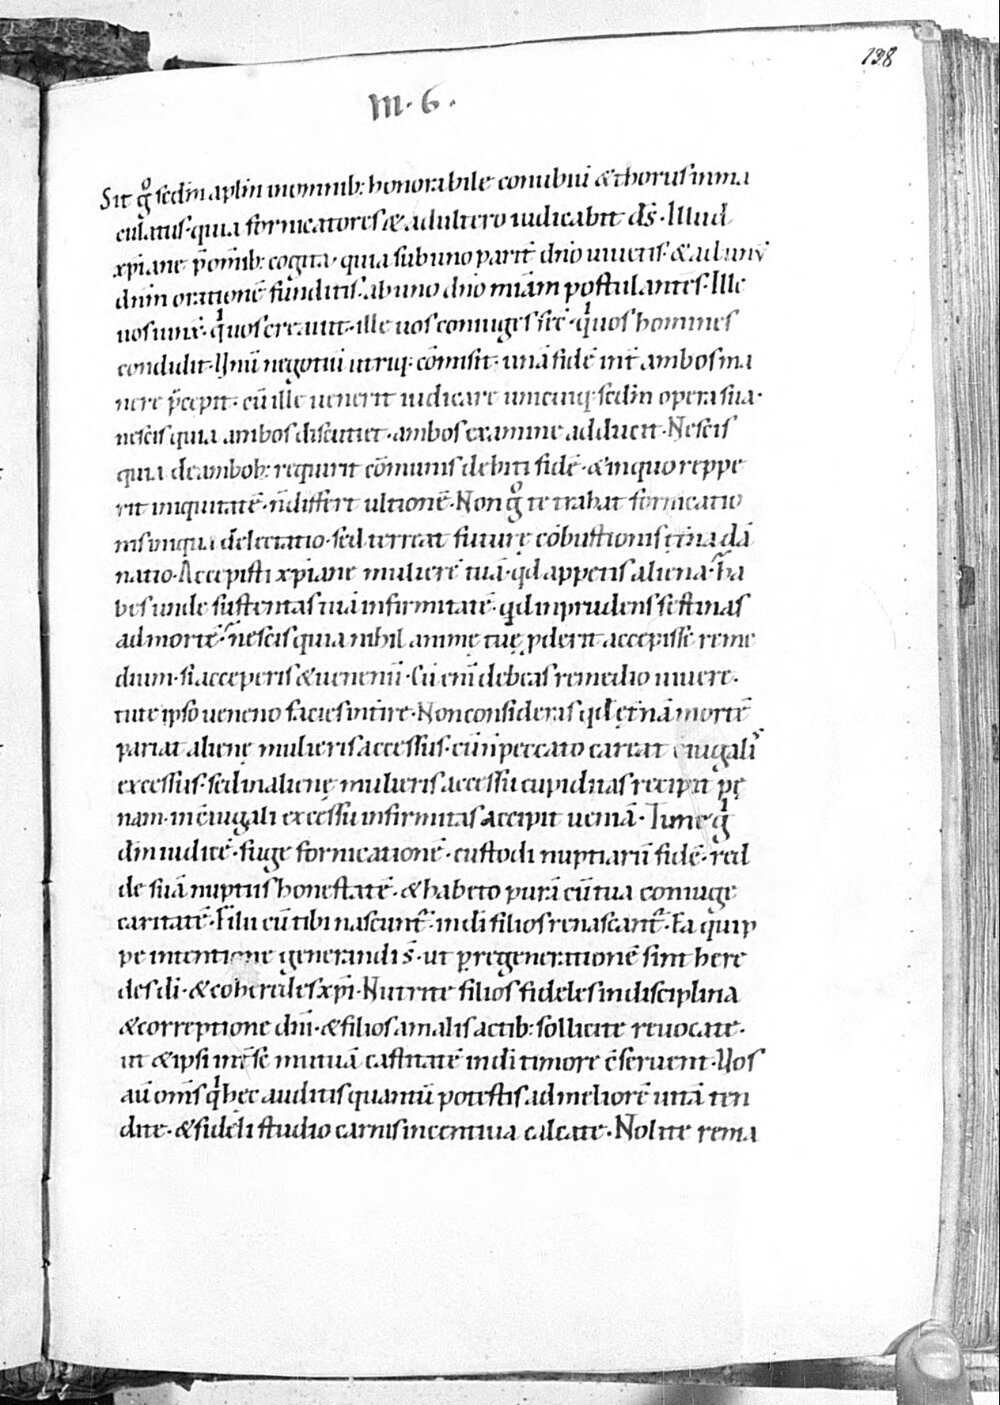 138
III · 6 ·
Sit g̊ sedm̄ aplm̄ inomnib: honorabile conubiū &thorus inma
culatus · quia fornicatores & adultero iudicabit ds̄ · Illud
xp̄iane p̄ om̄ib: cogita · quia sub uno parit̄ dn̄o uiuetis · & ad unū
dn̄m orationē funditis · ab uno dn̄o mīam postulantes · Ille
uos iunx̄ · qͥ uos creauit · ille uos coniuges fec̄ · qͥ uos homines
condidit · Unū negotiū utriq; cōmisit · unā fidē int̄ ambos ma
nere p̄cepit · cū ille uenerit iudicare unicuiq; sedm̄ opera sua ·
nescis quia ambos discutiet · ambos examine adducit · Nescis
quia deambob: requirit cōmunis debiti fidē · & inquo reppe
rit iniquitatē · n̄ differt ultionē · Non g̊ te trahat fornicatio
nis iniqua delectatio · sed terreat futurę cōbustionis ęt̄na dā
natio · Accepisti xp̄iane mulierē tuā · qd̄ appetis aliena · ha
bes unde sustentas tuā infirmitatē · qd̄ inprudens festinas
admortē · nescis quia nihil animę tuę pderit accepisse reme
dium · si acceperis & uenenū · Cū enī debeas remedio uiuere ·
tute ipso ueneno facies int̄ire · Non consideras qd̄ ęt̄nā mortē
pariat alienę mulieris accessus · cū n̄ peccato careat c̄iugalis
excessus · sed in alienę mulieris accessu cupiditas recipit pę
nam · in c̄iugali excessu infirmitas accipit ueniā · Time g̊
dm̄ iudicē · fuge fornicationē · custodi nuptiarū fidē · red
de suā nuptiis honestatē · & habeto purā cū tua coniuge
caritatē · Filii cū tibi nascunt̄ · in dī filios renascant̄ · Ea quip
pe intentione generandi s̄ · ut p regenerationē sint here
des dī · & coheredes xp̄i · Nutrite filios fideles in disciplina
& correptione dn̄i · & filios amalis actib: sollicite reuocate ·
ut & ipsi int̄ se mutuā castitatē in dī timore c̄seruent · Uos
aū om̄s qͥ hęc auditis quantū potestis admeliorē uitā ten
dite · & fideli studio carnis incentiua calcate · Nolite rema